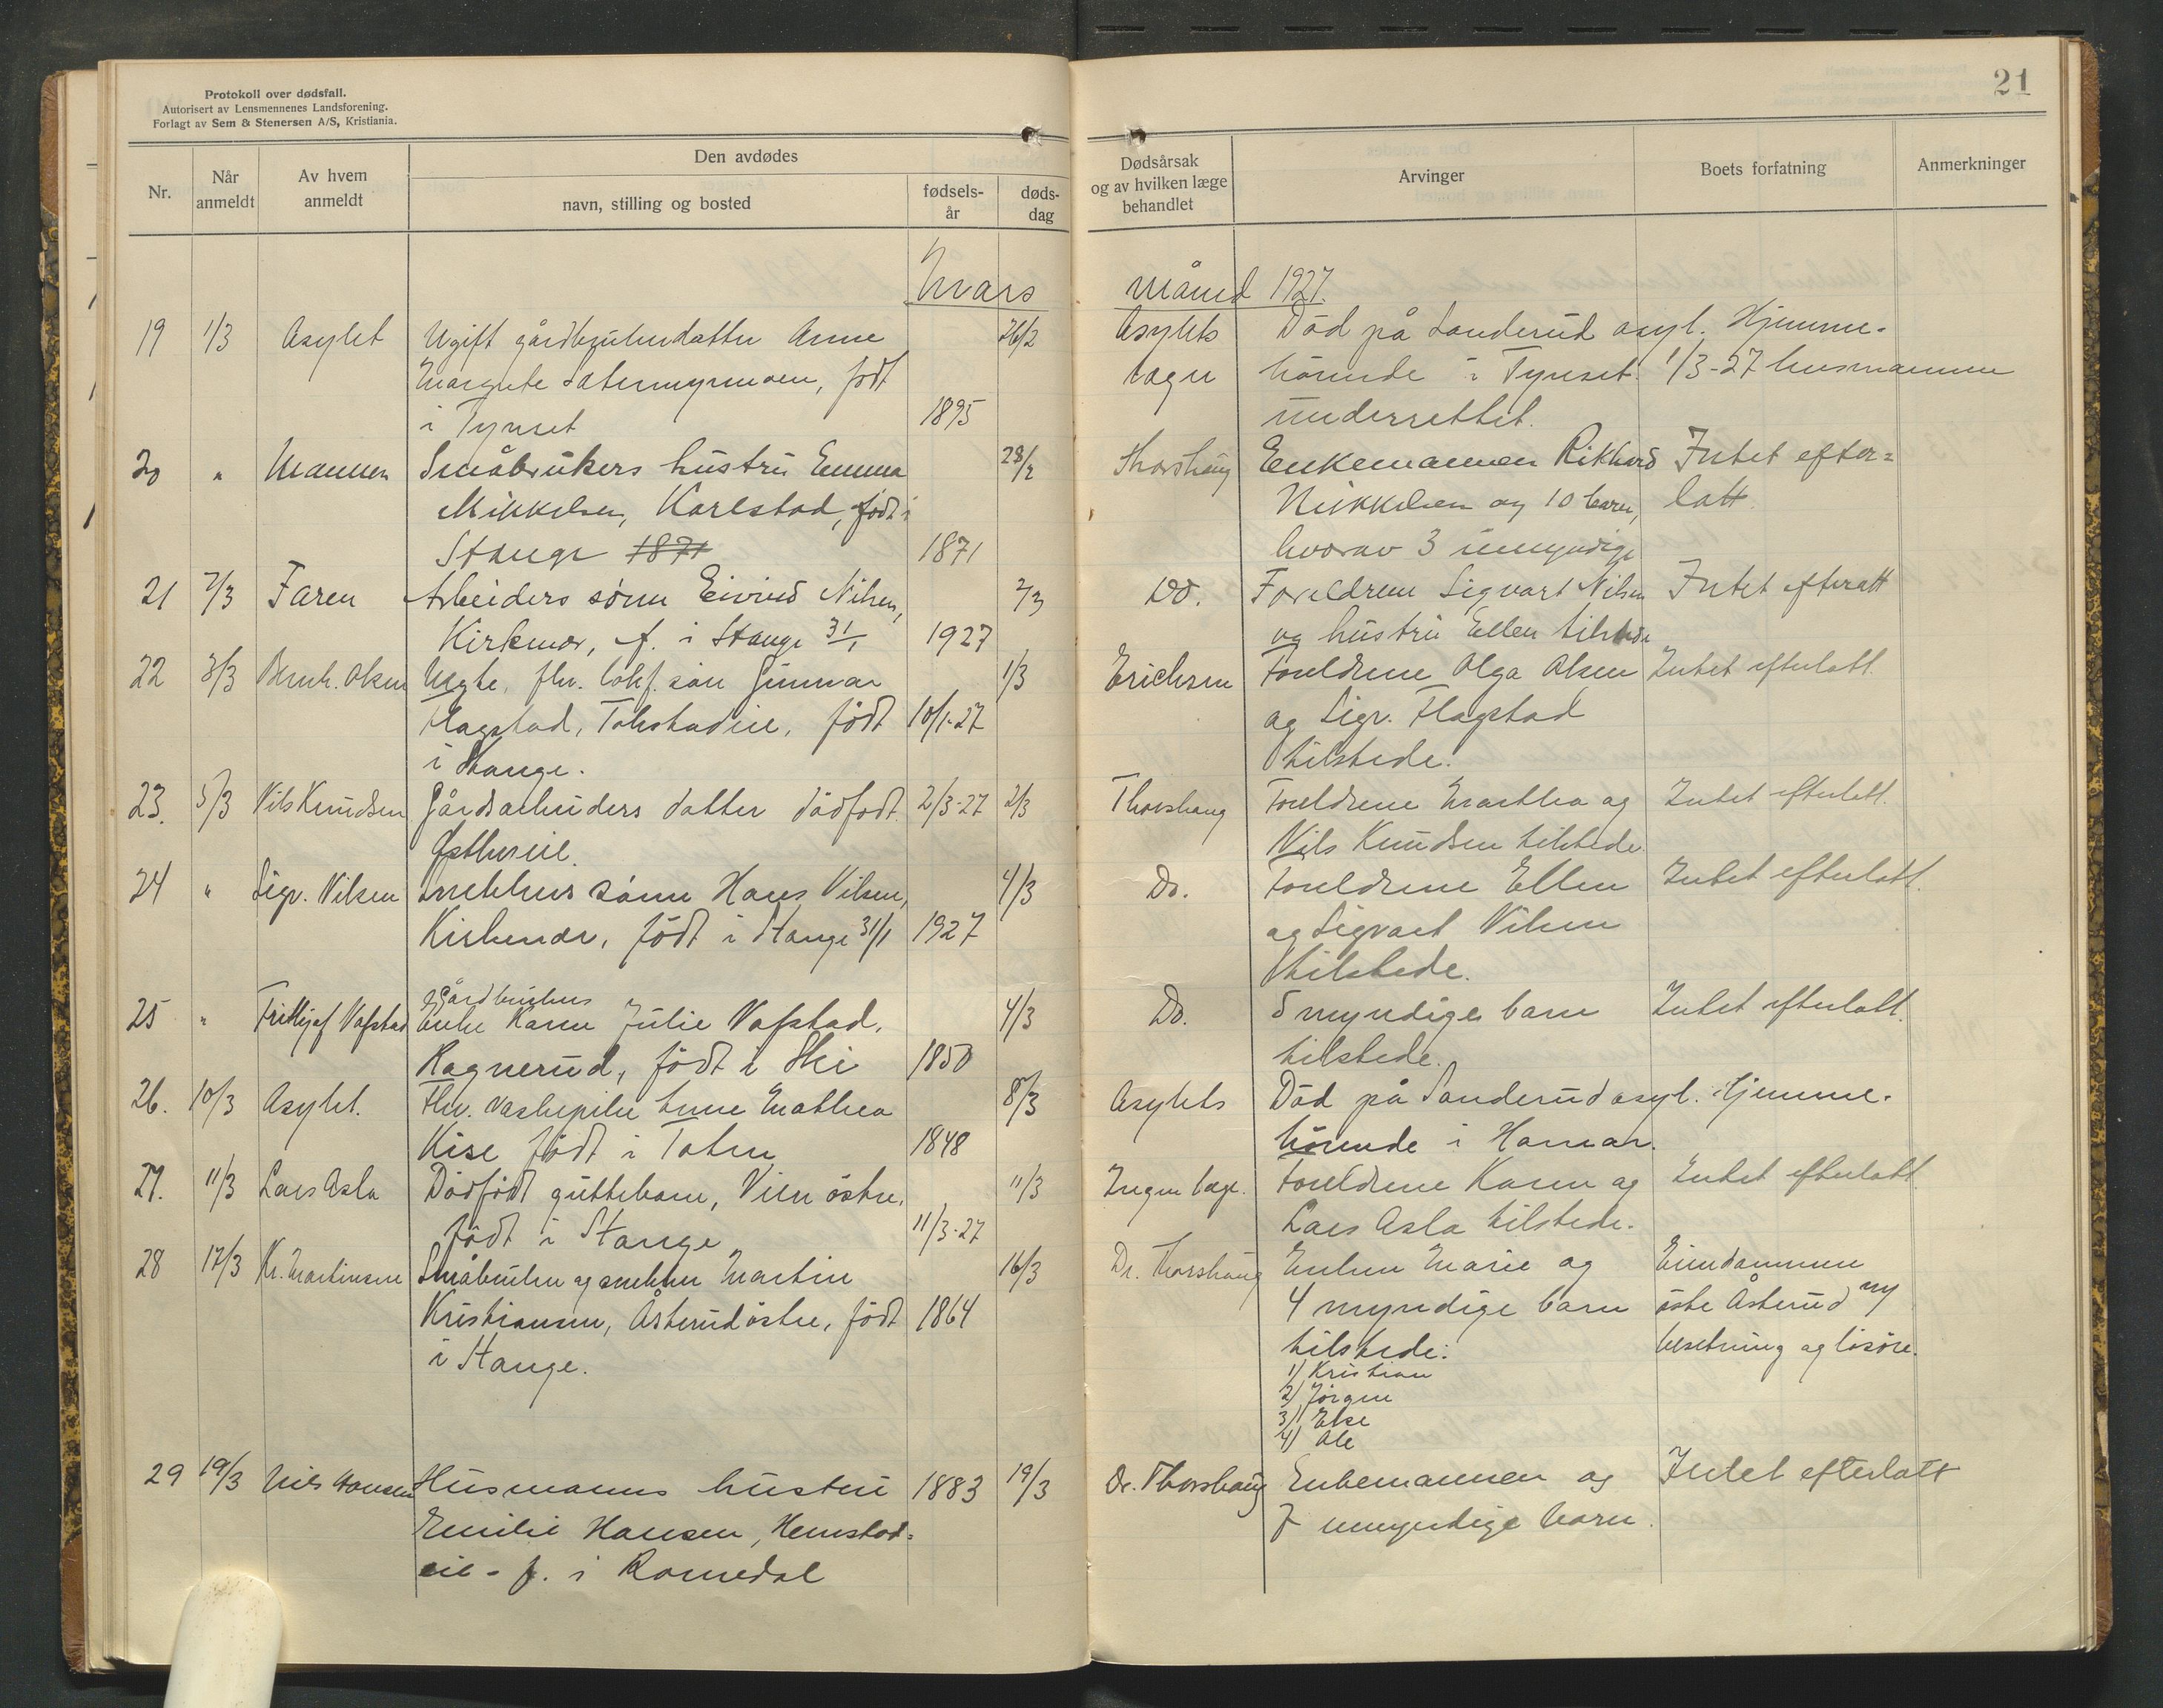 Protokoll over dødsfall.
Autorisert av Lensmennenes Landsforening.
Forlagt av Sem & Stenersen A/S, Kristiania.
21
Nr.
Når anmeldt
Av hvem anmeldt
Den avdødes
navn, stilling og bosted
fødsels- år
døds- dag
Dødsårsak og av hvilken læge behandlet
Arvinger
Boets forfatning
Anmerkninger
Mars måned 1927.
19 1/3 Asylet Ugift gårdbrukerdatter Anne 26/2 Asylets Död på Sanderud asyl. Hjemme-
Margrete Sætermyrmoen, födt læge hörende i Tynset. 1/3-27 lensmannen
i Tynset 1895 underrettet.
20 " Mannen Småbrukers hustru Emma 28/2 Thorshaug Enkemannen Rikhard Intet efter=
Mikkelsen, Karlstad, födt i Mikkelsen og 10 barn, latt.
Stange 1871 1871 hvorav 3 umyndige
21 2/3 Faren Arbeiders sönn Eivind Nilsen, 2/3 Do. Foreldrene Sigvart Nilsen Intet efteratt
Kirkenær, f. i Stange 31/1 1927 og hustru Ellen tilstede
22 3/3 Bernh. Olsen Uegte, fhv. lokf. sön Gunnar 1/3 Erichsen Foreldrene Olga Olsen Intet efterlatt.
Flagstad, Tokstadeie, födt 10/1-27 og Sigv. Flagstad
i Stange. tilstede.
23. 5/3 Nils Knudsen Gårdsarbeiders datter dödfödt. 2/3-27 2/3 Thorshaug Foreldrene Marthea og Intet efterlatt.
Østbyeie. Nils Knudsen tilstede
24 " Sigv. Nilsen Snekkers sönn Hans Nilsen, 4/3 Do. Foreldrene Ellen Intet efterlatt.
Kirkenær, födt i Stange 31/1 1927 og Sigvart Nilsen
tilstede.
25 " Frithjof Vafstad Gårdbrukers
Enke Karen Julie Vafstad, 4/3 Do. 5 myndige barn Intet efterlatt.
Ragnerud, födt i Ski 1850 tilstede.
26. 10/3 Asylet. Fhv. vaskepike Anne Mathea 8/3 Asylets Död på Sanderud asyl. Hjemme-
Kise födt i Toten 1848 hörende i Hamar.
27. 11/3 Lars Asla Dödfödt guttebarn, Vien östre, 11/3 Ingen læge. Foreldrene Karen og Intet efterlatt.
födt i Stange 11/3-27 Lars Asla tilstede.
28 17/3 Kr. Martinsen Småbruker og snekker Martin 16/3 Dr. Thorshaug Enken Marie og Eiendommen
Kristiansen, Åsterud östre, födt 1864 4 myndige barn östre Åsterud ny
i Stange. tilstede: besetning og lösöre.
1) Kristian
2) Jörgen
3) Else
4) Ole
29 19/3 Nils Hansen Husmanns hustru 1883 19/3 Dr. Thorshaug Enkemannen og Intet efterlatt
Emilie Hansen, Hemstad= 7 umyndige barn.
eie - f. i Romedal